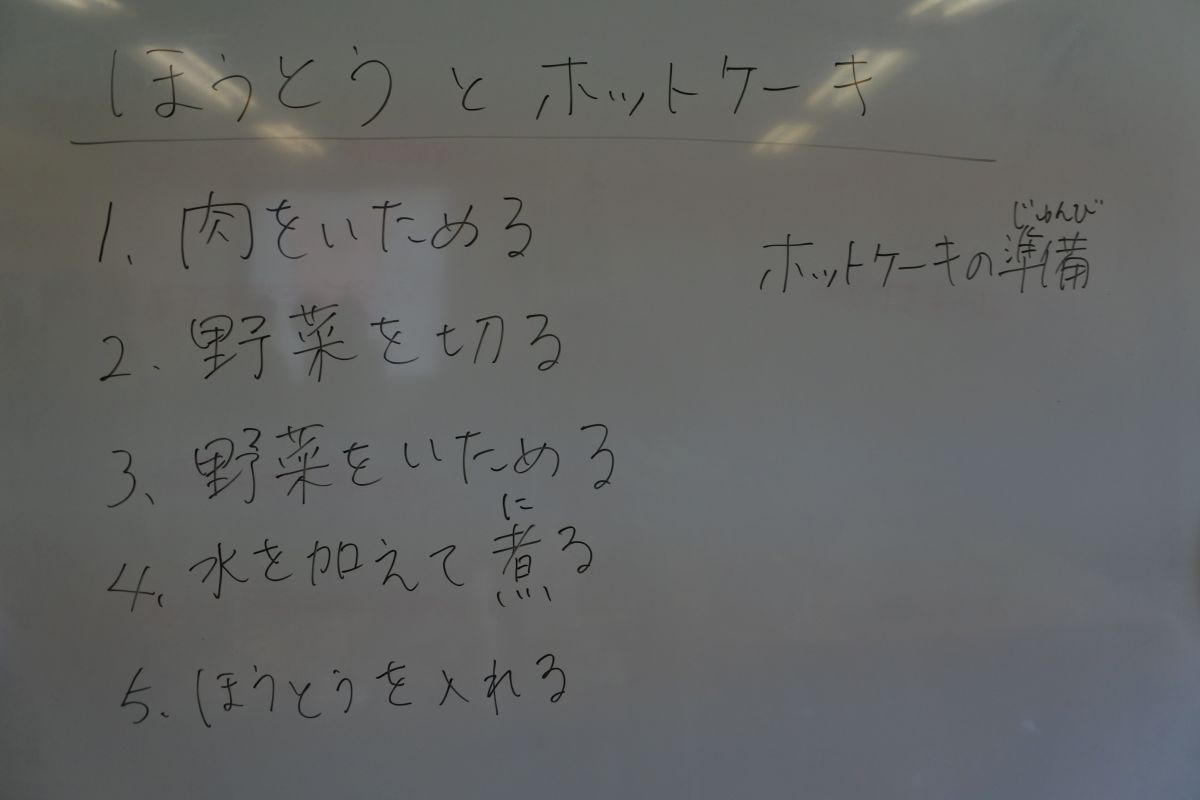 ほうとうとホットケーキ
1. 肉をいためる
2. 野菜を切る
3. 野菜をいためる
に
4. 水を加えて煮る
5. ほうとうを入れる
じゅんび
ホットケーキの準備